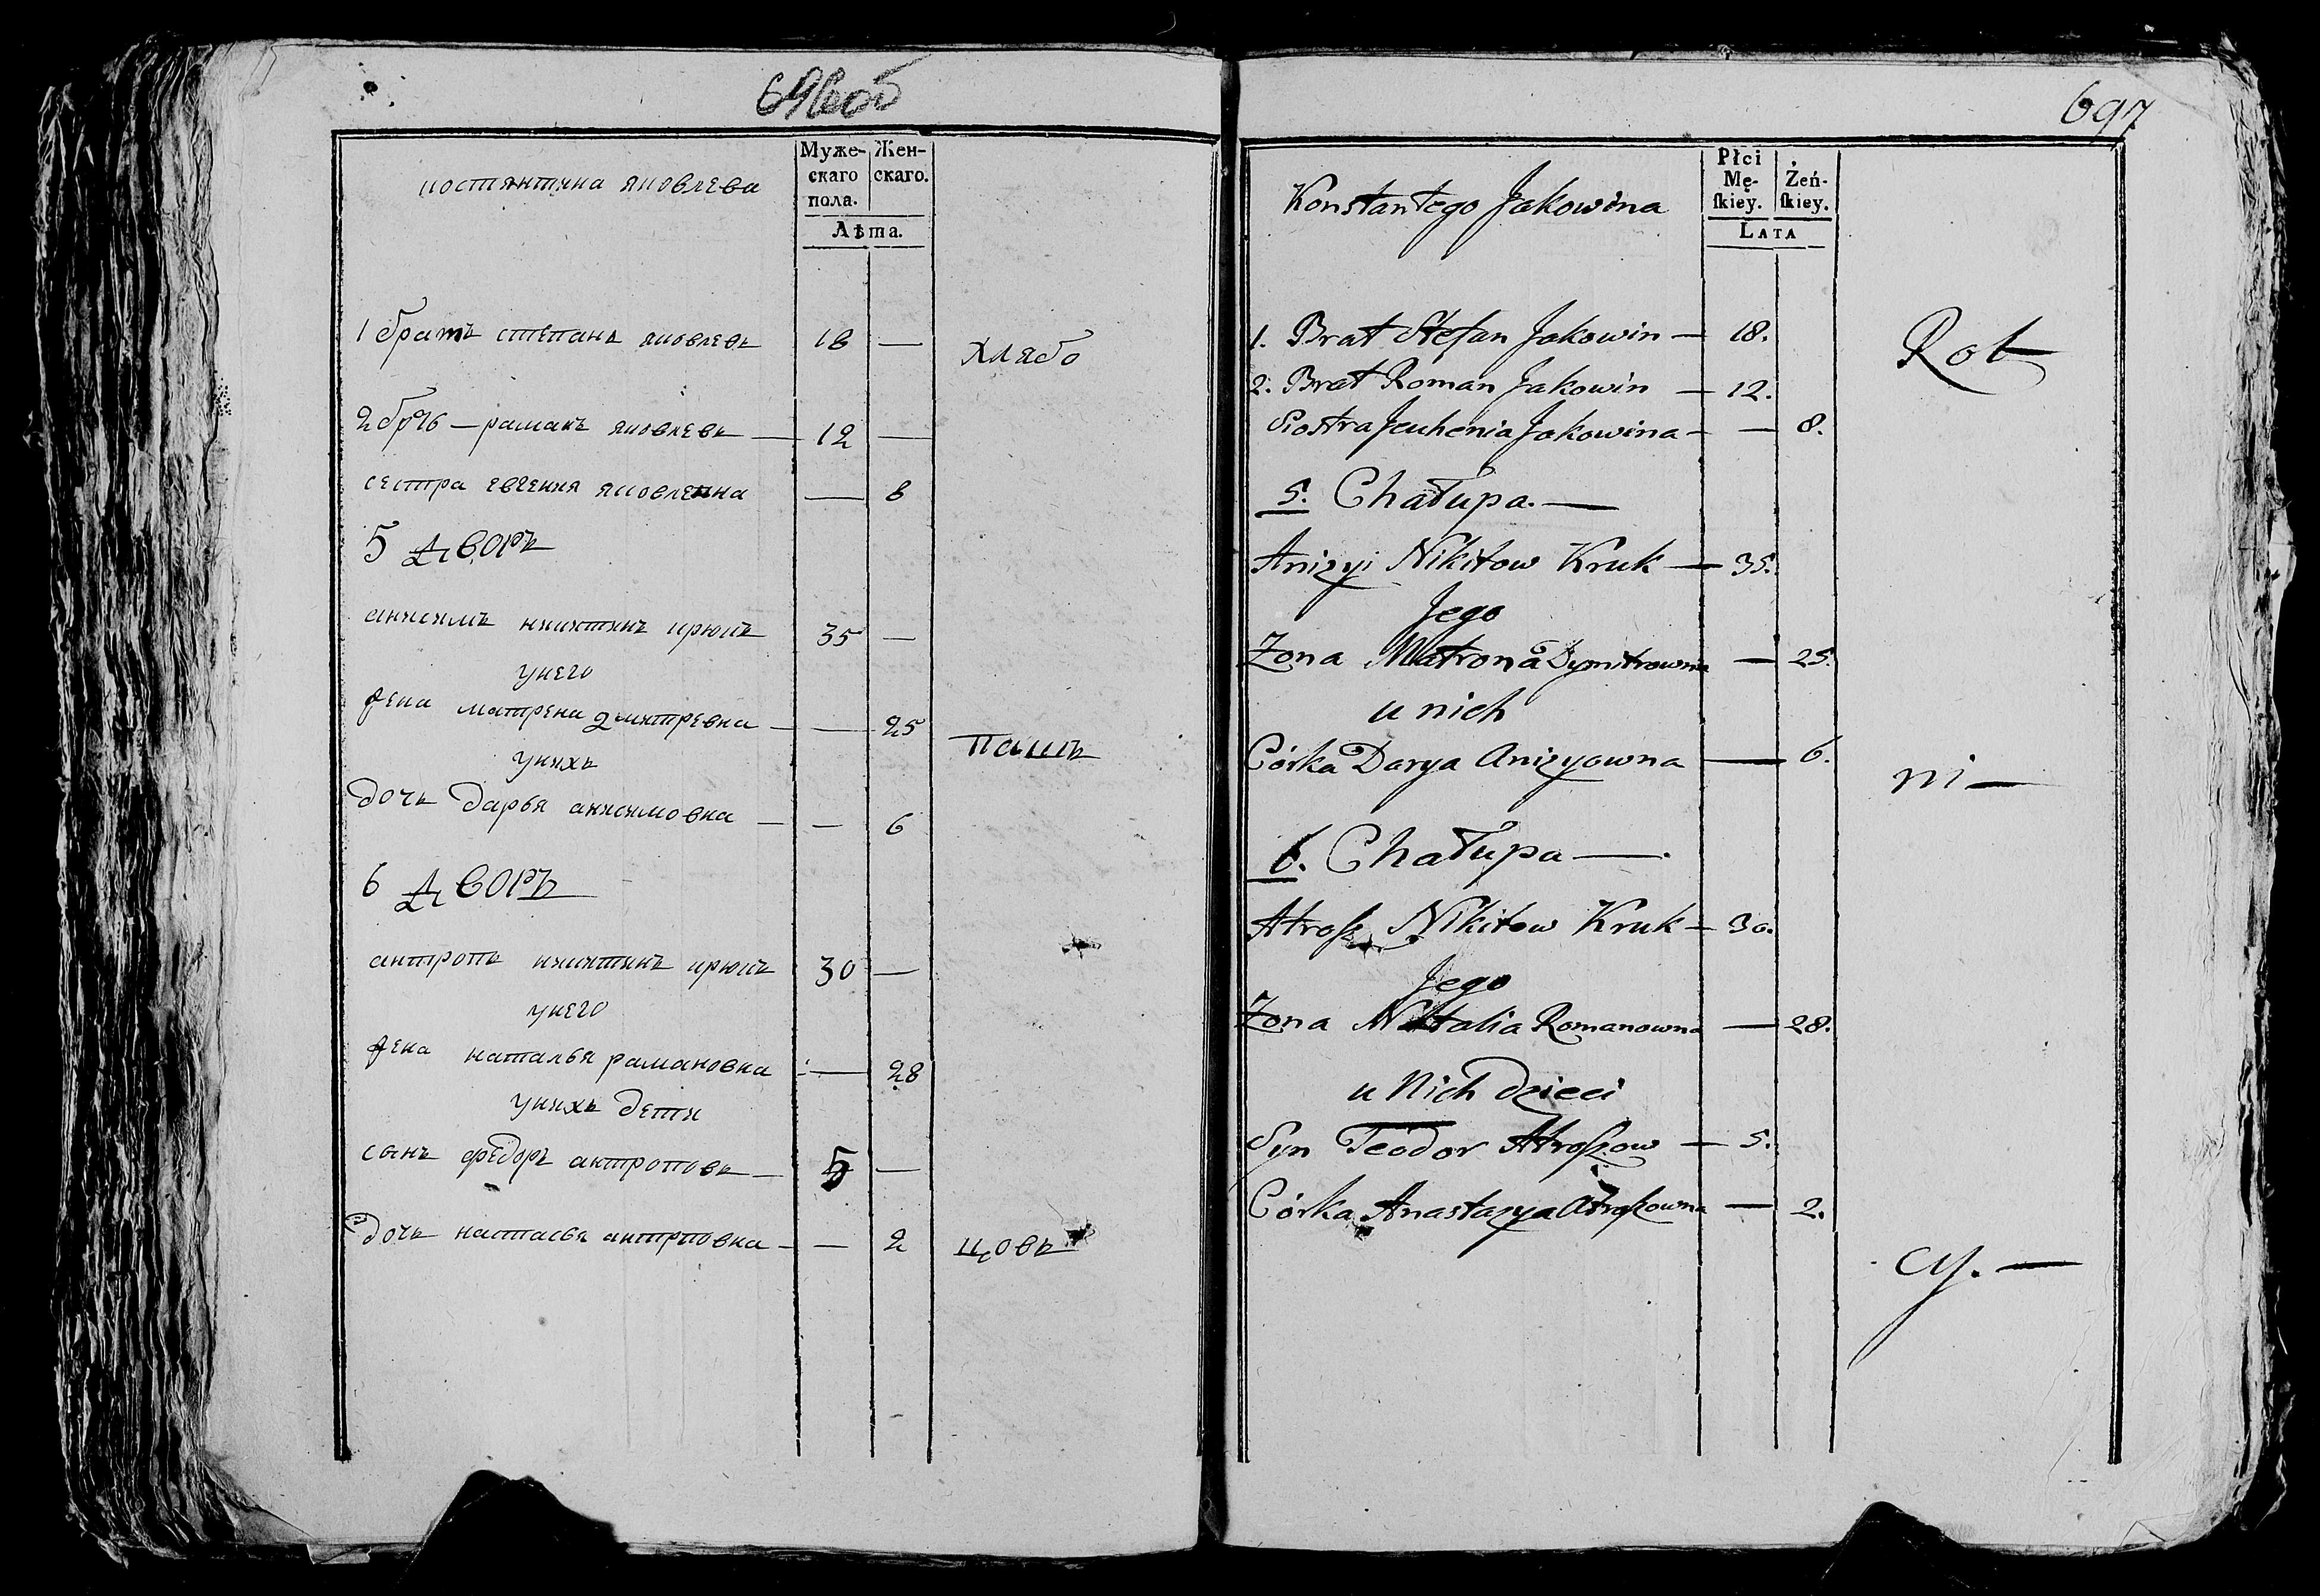 696об
костянтина яковлева
Муже-
скаго
пола.
Жен-
скаго.
Лѣта.
1 братъ степанъ яковлевъ 18 —
хлябо
2 братъ — раманъ яковлевъ — 12 —
сестра евгения яковлевна — 8
5 Дворъ
анисимъ никитинъ крюкъ 35 —
унего
жена матрена дмитревна — — 25
пашъ
унихъ
дочь дарья анисимовна — — 6
6 Дворъ
антропъ никитинъ крюкъ 30 —
унего
жена наталья рамановна — 28
унихъ дети
сынъ федоръ антроповъ — 5 —
дочь настасья антрповна — — 2
цовъ
697
Konstantego Jakowina
Płci
Mę-
ſkiey.
Żeń-
ſkiey.
Lata
1. Brat Stefan Jakowin — 18.
Rot
2. Brat Roman Jakowin — 12.
Siostra Jeuhenia Jakowina — — 8.
5. Chałupa. —
Anizyi Nikitow Kruk — 35.
Jego
Zona Matrona Dymitrowna — 25.
u nich
Córka Darya Anizyowna — 6.
ni —
6. Chałupa —.
Atroſz Nikitow Kruk — 30.
Jego
Zona Natalia Romanowna — 28.
u Nich dzieci
Syn Teodor Atroſzow — 5.
Córka Anastazya Atroſzowna — 2.
cy. —